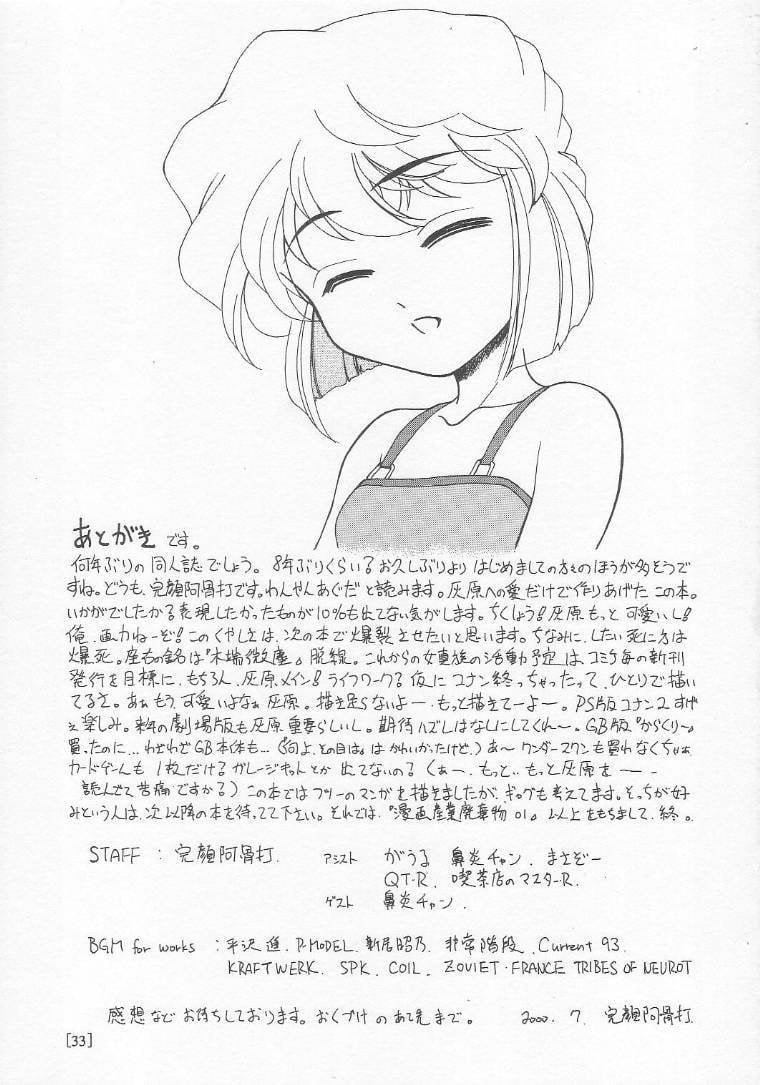 あとがき です。
何年ぶりの同人誌でしょう。8年ぶりくらい?お久しぶりより はじめましての方々のほうが多そうで
すね。どうも、完顔阿骨打です。わんやんあぐだと読みます。灰原への愛だけで作りあげた この本。
いかがでしたか?表現したかったものが10%も出てない気がします。ちくしょう!灰原もっと可愛いし!
俺、画力ねーぞ!このくやしさは、次の本で爆裂させたいと思います。ちなみに、したい死に方は
爆死。座右の銘は『木端微塵』。脱線。これからの女真族の活動予定は、コミケ毎の新刊
発行を目標に、もちろん、灰原メイン!ライフワーク?仮にコナン終っちゃったって、ひとりで描い
てるさ。あぁもう、可愛いよなぁ灰原。描き足らないよー、もっと描きてーよー。PS版コナン2 すげ
ぇ楽しみ。来年の劇場版も灰原重要らしいし。期待ハズレはなしにしてくれ〜。GB版『からくり〜』
買ったのに…わざわざGB本体も…(『何よ、その目は』は かわいかったけど。)あ〜ワンダースワンも買わなくちゃぁ
カードゲームも 1枚だけ?ガレージキットとか 出てないの?くぁー、もっと、もっと灰原をーー
読んでて苦痛ですか?)この本ではフツーのマンガを描きましたが、ギャグも考えてます。そっちが好
みという人は、次以降の本を待ってて下さい。それでは、『漫画産業廃棄物01』以上をもちまして、終。
STAFF : 完顔阿骨打. アシスト がうる 鼻炎チャン. まさぞー
QT-R. 喫茶店のマスターR.
ゲスト 鼻炎チャン.
BGM for works : 平沢 進. P-MODEL. 新居昭乃. 非常階段. Current 93.
KRAFTWERK. SPK. COIL. ZOVIET・FRANCE TRIBES OF NEUROT
感想など お待ちしております。おくづけ の あて先 まで。 2000. 7. 完顔阿骨打.
[33]